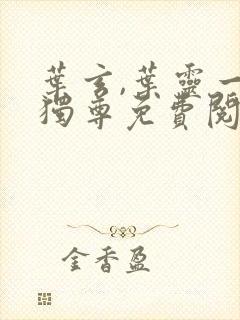 葉玄,葉靈一
獨尊免費閱
金香盈